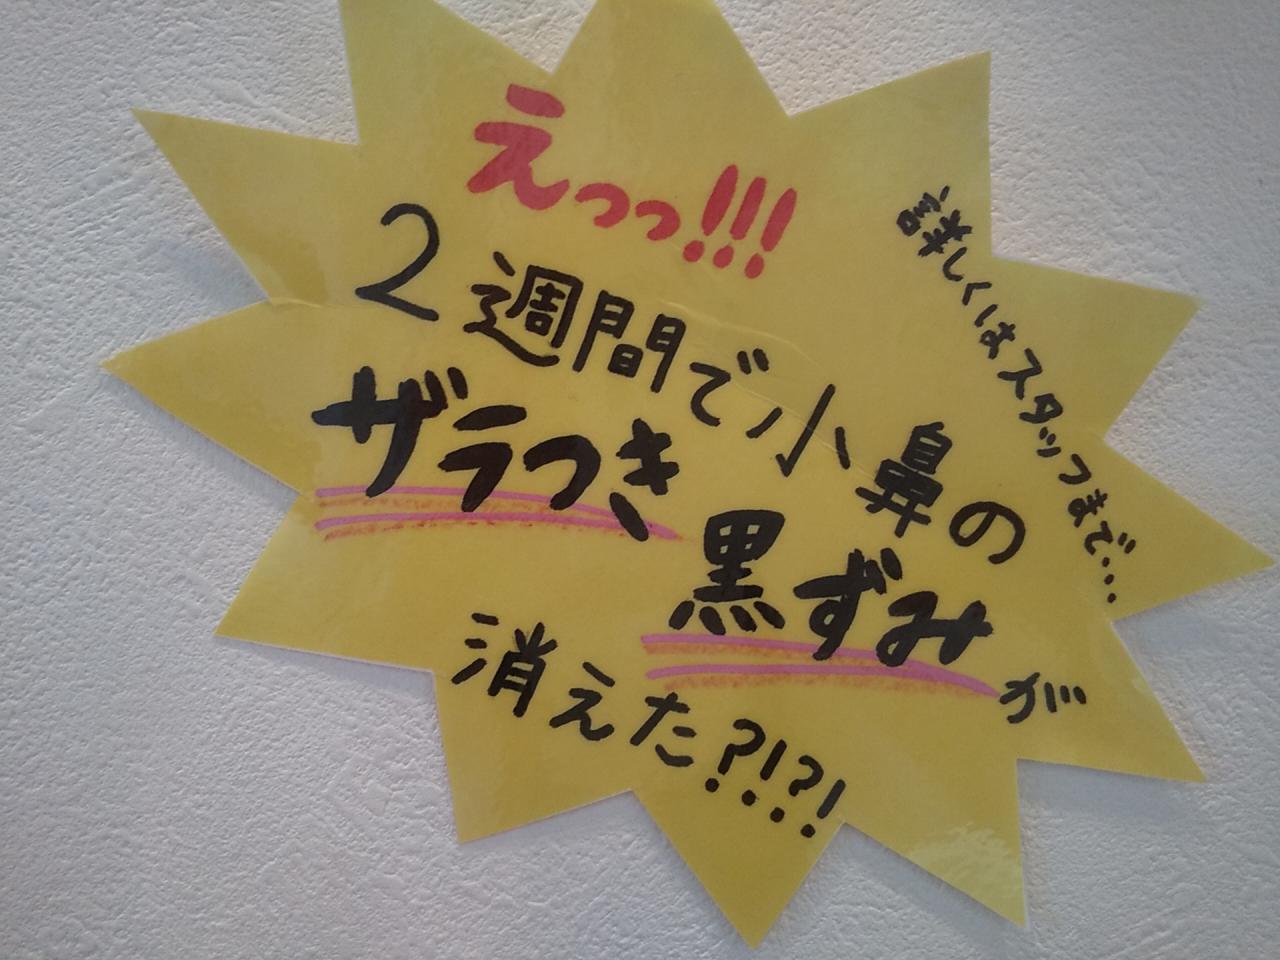 えっっ!!!
2週間で小鼻の
ザラつき
黒ずみが
消えた?!?!
詳しくはスタッフまで...